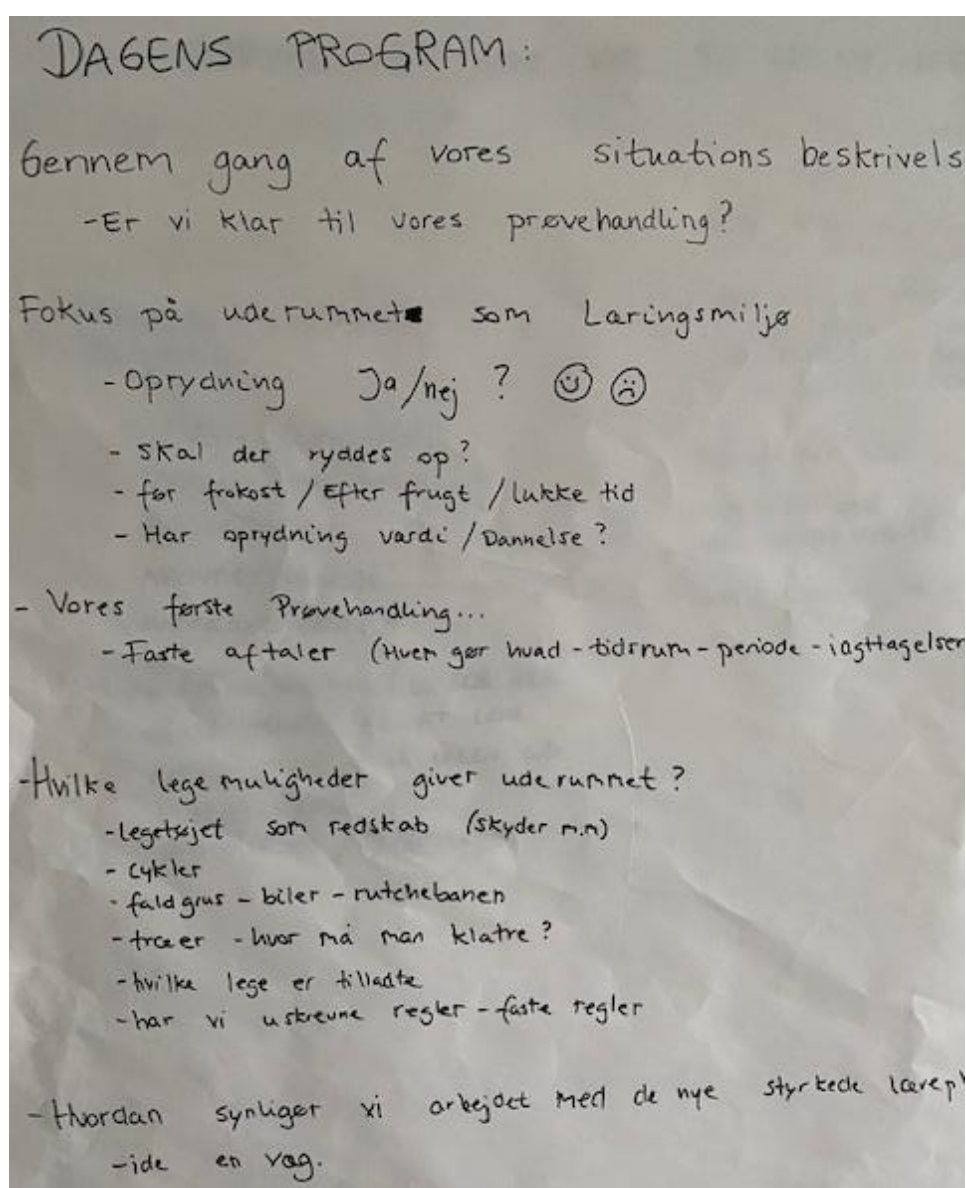 DAGENS PROGRAM:
Gennem gang af vores situations beskrivels
-Er vi klar til vores prøvehandling?
Fokus på uderummet som Læringsmiljø
-Oprydning Ja/nej ?
- Skal der ryddes op?
- før frokost / Efter frugt / lukke tid
- Har oprydning værdi / Dannelse?
- Vores første Prøvehandling...
- Faste aftaler (Hvem gør hvad - tidsrum - periode - iagttagelser
-Hvilke lege muligheder giver uderummet?
-legetøjet som redskab (skyder m.m)
- cykler
- faldgrus - biler - rutchebanen
-træer - hvor må man klatre?
-hvilke lege er tilladte
-har vi uskrevne regler - faste regler
-Hvordan synliger vi arbejdet med de nye styrkede lærepl
-ide en væg.